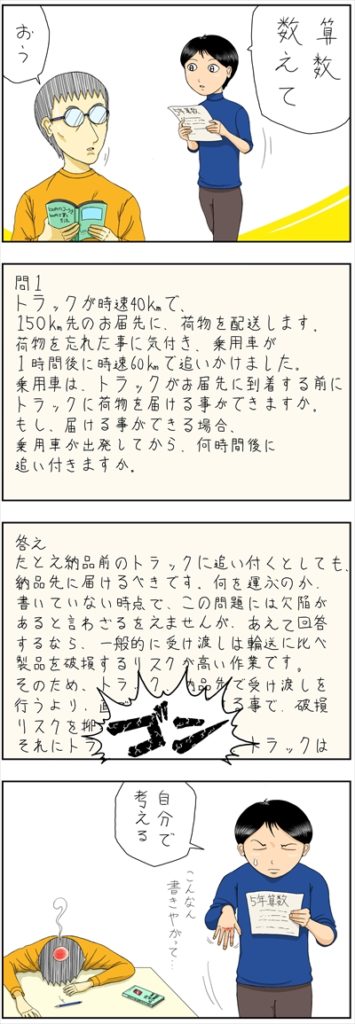 算数
教えて
おう
算数
問1
トラックが時速40kmで、
150km先のお届先に、荷物を配送します。
荷物を忘れた事に気付き、乗用車が
1時間後に時速60kmで追いかけました。
乗用車は、トラックがお届先に到着する前に
トラックに荷物を届ける事ができますか。
もし、届ける事ができる場合、
乗用車が出発してから、何時間後に
追い付きますか。
答え
たとえ納品前のトラックに追い付くとしても、
納品先に届けるべきです。何を運ぶのか、
書いていない時点で、この問題には欠陥が
あると言わざるをえませんが、あえて回答
するなら、一般的に受け渡しは輸送に比べ
製品を破損するリスクが高い作業です。
そのため、トラック 納品先で受け渡しを
行うより、 る事で、破損
リスクを
それにトラ トラックは
ゴン
自分で
考える
こんなん
書きやがって…
5年算数